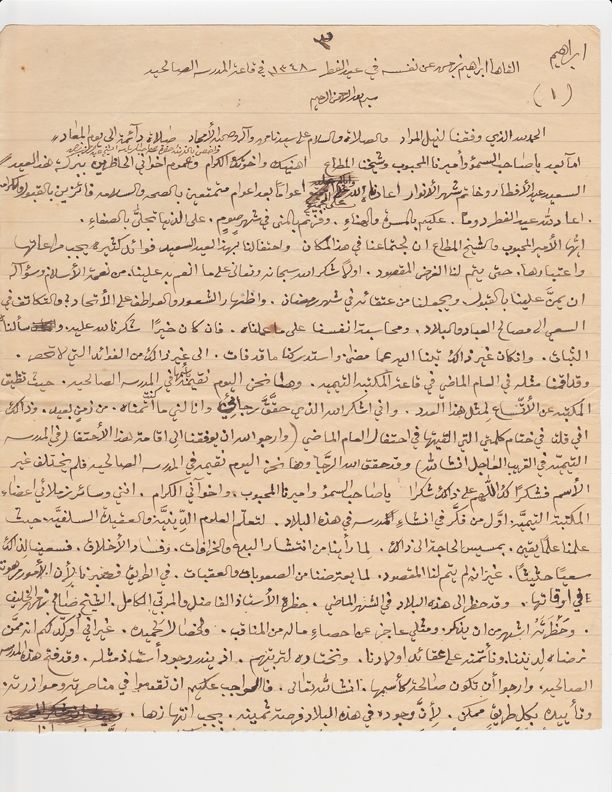 ابراهيم
القاها ابراهيم نرجس عن نفسه في عيد الفطر - ١٣٤٨ في قاعة المدرسه الصالحيه
(١)
بسم الله الرحمن الرحيم
الحمد لله الذي وفقنا لنيل المراد والصلاة والسلام على سيدنا محمد وآله وصحبه الأمجاد صلاة دائمة الى يوم المعاد
اما بعد يا صاحب السمو واميرنا المحبوب وشيخنا المطاع اهنيك واخوتك الكرام وعموم اخواني الحاظرين ببركة هذا العيد
السعيد عيد الأفطار وخاتم شهر الأنوار اعاده الله عليكم اعواماً بعد اعوام متمتعين بالصحه والسلامه فائزين بالقبول
اعاد الله عيد الفطر دوماً . عليكم بالمسرة والهناء . وفزتم بالمنى في شهر صوم . على الدنيا تجلى بالصفاء .
ايها الأمير المحبوب والشيخ المطاع ان لجتماعنا في هذا المكان واحتفالنا بهذا العيد السعيد فوائد كثيره يجب مراعاتها
واعتبارها . حتى يتم لنا الغرض المقصود . اولاً شكر الله سبحانه وتعالى على ما انعم به علينا . من نعمة الأسلام وسؤاله
ان يمن علينا بالقبول ويجعلنا من عتقائه في شهر رمضان . واظهار الشعور والعواطف على الأتحاد والتكاتف في
السعي الى مصالح العباد والبلاد . ومحاسبة انفسنا على ما عملناه . فان كان خيراً شكرنا الله عليه وسألناه
الثبات . وان كان غير ذالك تبنا اليه عما مضى واستدركنا ما قد فات . الى غير ذالك من الفوائد التي لا تحصى .
وقد اقمنا مثله في العام الماضي في قاعة المكتبه التيميه . وها نحن اليوم نقيمه في المدرسه الصالحيه . حيث تظيق
المكتبه عن الأتساع لمثل هذا العدد . واني اشكر الله الذي حقق رجائي وانالني ما كنت اتمناه . من زمن بعيد . وذالك
اني قلت في ختام كلمتي التي القيتها في احتفال العام الماضي (وارجو الله ان يوفقنا الى اقامة هذا الأحتفال في المدرسه
التيميه في القريب العاجل انشاء الله) وقد حقق الله الرجا وها نحن اليوم نقيمه في المدرسه الصالحيه فلم يختلف غير
الأسم فشكراً لك اللهم على ذالك شكرا يا صاحب السمو واميرنا المحبوب . واخواني الكرام . انني وسائر زملائي اعضاء
المكتبه التيميه اول من فكر في انشاء المدرسه في هذه البلاد . لتعلم العلوم الدينيه والعقيده السلفيه حيث
علمنا علماً يقين . بمسيس الحاجة الى ذالك . لما رأينا من انتشار البدع والخرافات . وفساد الأخلاق . فسعينا لذالك
سعياً حثيثاً . غير انه لم يتم لنا المقصود . لما يعترضنا من الصعوبات والعقبات . في الطريق فصبرنا لأن الأمور مرهونة
في اوقاتها . وقد حظر الى هذه البلاد في الشهر الماضي . حظرة الأستاذ الفاضل والمربي الكامل . الشيخ
وحظرته اشهر من ان يذكر . ومثلي عاجز عن احصاء ماله من المناقب . والخصال الحميده . غير اني أوكد لكم انه ممن
نرضاه لديننا . ونأتمنه على عقائد اولادنا . ونختاره لتربيتهم . اذ يندر وجود أستاذ مثله . وقد فتح هذه المدرسه
الصالحيه . وارجوا ان تكون صالحة كأسمها . انشاء الله تعالى . فالواجب عليكم ان تقوموا في مناصرته وموازرته .
وتأييده بكل طريق ممكن . لأن وجوده في هذه البلاد فرصة ثمينه . يجب انتهازها .